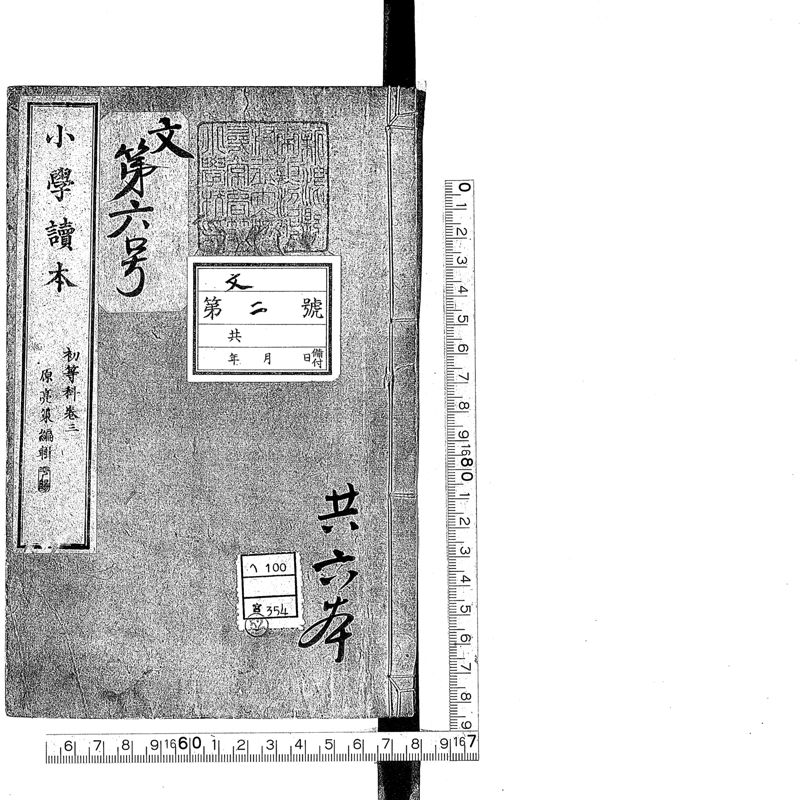 小學讀本
初等科卷三
原亮策編輯
文
第六号
文
第二號
共
年 月 日備付
共六本
ヘ 100
354
0 1 2 3 4 5 6 7 8 9 16 80 1 2 3 4 5 6 7 8 9
6 7 8 9 16 60 1 2 3 4 5 6 7 8 9 16 7